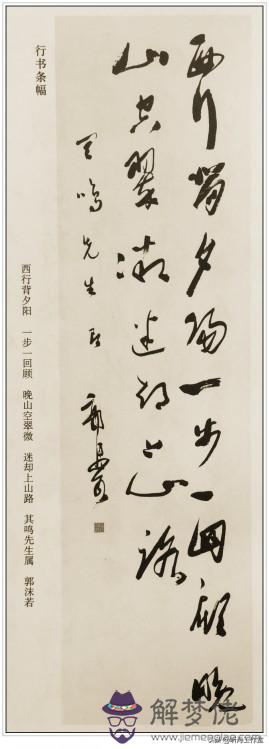 西行背夕陽一步一回顧晚
山空翠微迷却上山路
其鳴先生属
郭沫若
行书条幅
西行背夕阳 一步一回顾 晚山空翠微 迷却上山路 其鸣先生属 郭沫若
解梦佬